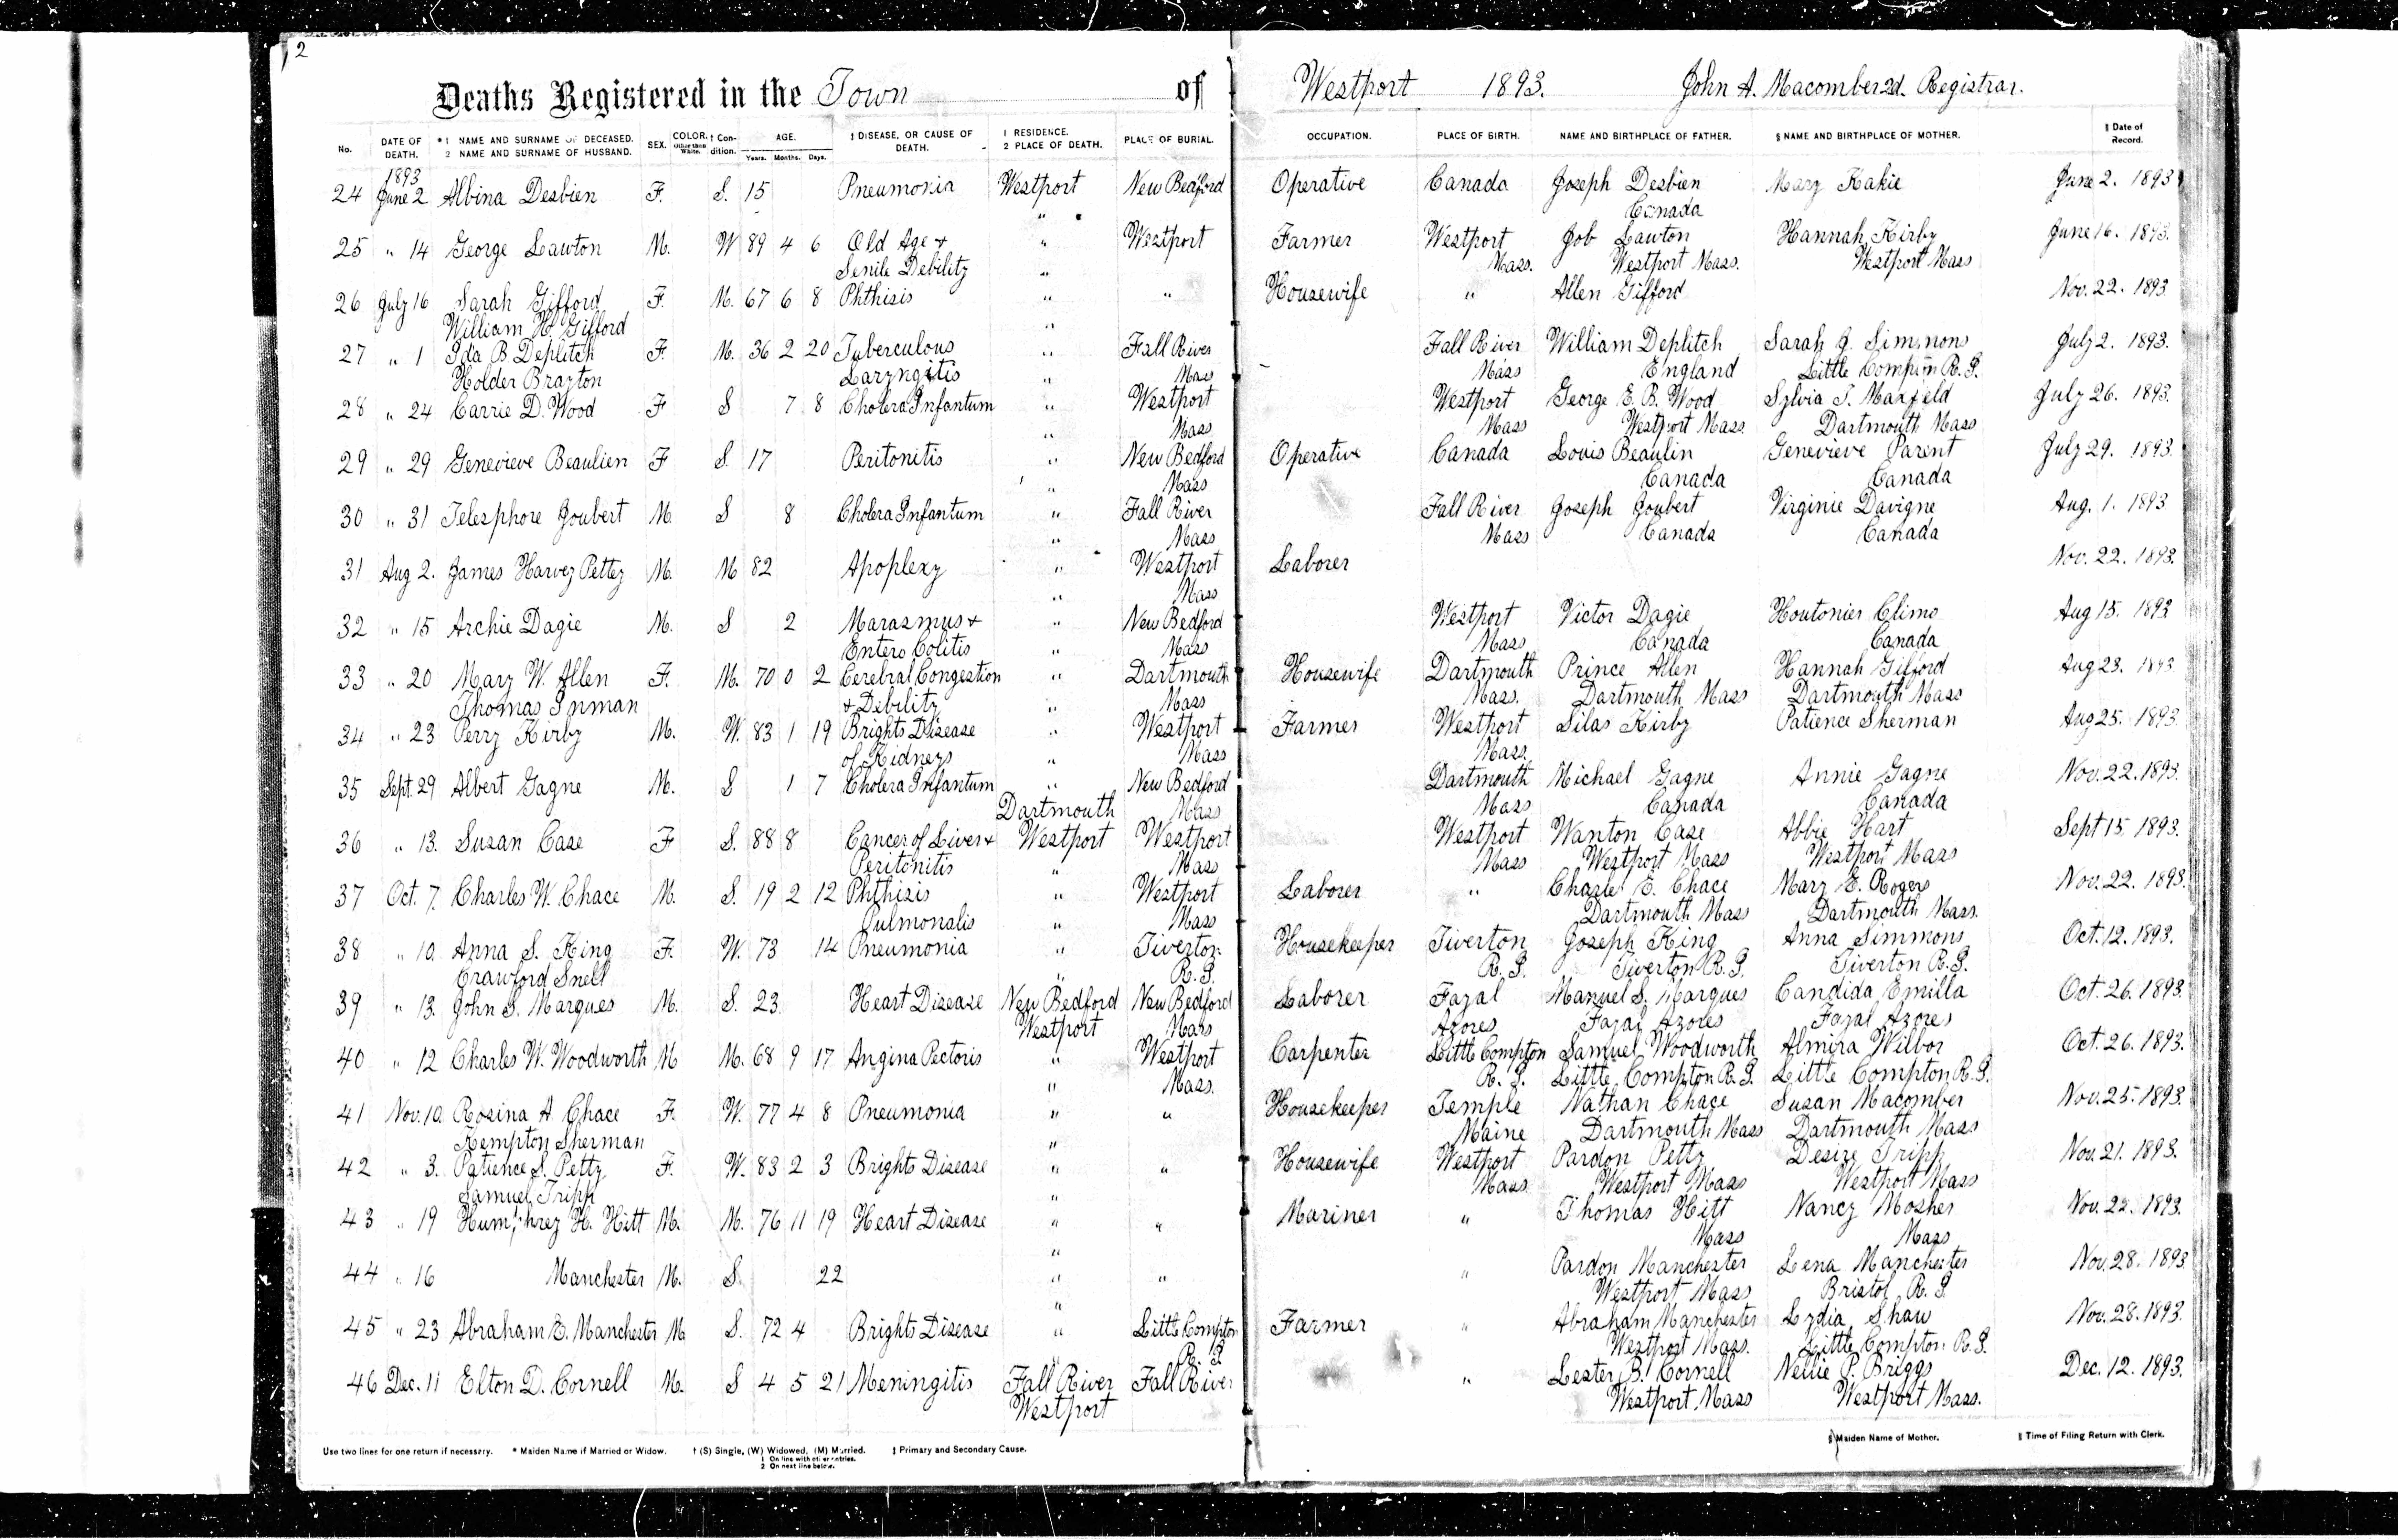 2
Deaths Registered in the Town of Westport 1893. John A. Macomber 2d. Registrar.
No. DATE OF DEATH. *1 NAME AND SURNAME OF DECEASED. 2 NAME AND SURNAME OF HUSBAND. SEX. COLOR. Other than White. † Condition. AGE. Years. Months. Days. ‡ DISEASE, OR CAUSE OF DEATH. 1 RESIDENCE. 2 PLACE OF DEATH. PLACE OF BURIAL. OCCUPATION. PLACE OF BIRTH. NAME AND BIRTHPLACE OF FATHER. § NAME AND BIRTHPLACE OF MOTHER. ‖ Date of Record.
1893
24 June 2 Albina Desbien F. S. 15 Pneumonia Westport New Bedford Operative Canada Joseph Desbien Mary Kakie June 2. 1893
" Canada
25 " 14 George Lawton M. W 89 4 6 Old Age + " Westport Farmer Westport Job Lawton Hannah Kirby June 16. 1893.
Senile Debility " Mass. Westport Mass. Westport Mass
26 July 16 Sarah Gifford F. M. 67 6 8 Phthisis " " Housewife " Allen Gifford Nov. 22. 1893
William H. Gifford "
27 " 1 Ida B Deplitch F. M. 36 2 20 Tuberculous " Fall River Fall River William Deplitch Sarah J. Simmons July 2. 1893.
Holder Brayton Laryngitis " Mass Mass England Little Compton R. I.
28 " 24 Carrie D. Wood F S 7 8 Cholera Infantum " Westport Westport George E. B. Wood Sylvia T. Maxfeld July 26. 1893.
" Mass Mass Westport Mass. Dartmouth Mass
29 " 29 Genevieve Beaulien F S. 17 Peritonitis " New Bedford Operative Canada Louis Beaulin Genevieve Parent July 29. 1893
" Mass Canada Canada
30 " 31 Telesphore Joubert M. S 8 Cholera Infantum " Fall River Fall River Joseph Joubert Virginie Davigne Aug. 1. 1893
" Mass Mass Canada Canada
31 Aug 2. James Harvey Pettey M. M 82 Apoplexy " Westport Laborer Nov. 22. 1893.
" Mass
32 " 15 Archie Dagie M. S 2 Marasmus + " New Bedford Westport Victor Dagie Houtonier Climo Aug 15. 1893
Entero Colitis " Mass Mass Canada Canada
33 " 20 Mary W. Allen F. M. 70 0 2 Cerebral Congestion " Dartmouth Housewife Dartmouth Prince Allen Hannah Gifford Aug 23. 1893
Thomas Inman + Debility " Mass Mass. Dartmouth Mass Dartmouth Mass
34 " 23 Perry Kirby M. W. 83 1 19 Brights Disease " Westport Farmer Westport Silas Kirby Patience Sherman Aug 25. 1893.
of Kidneys " Mass Mass.
35 Sept. 29 Albert Gagne M. S 1 7 Cholera Infantum " New Bedford Dartmouth Michael Gagne Annie Gagne Nov. 22. 1893.
Dartmouth Mass Mass Canada Canada
36 " 13. Susan Case F S. 88 8 Cancer of Liver + Westport Westport Westport Wanton Case Abbie Hart Sept 15 1893.
Peritonitis " Mass Mass Westport Mass Westport Mass
37 Oct. 7. Charles W. Chace M. S. 19 2 12 Phthisis " Westport Laborer " Charles E. Chace Mary E. Rogers Nov. 22. 1893.
Pulmonalis " Mass Dartmouth Mass Dartmouth Mass.
38 " 10 Anna S. King F. W. 73 14 Pneumonia " Tiverton Housekeeper Tiverton Joseph King Anna Simmons Oct. 12. 1893.
Crawford Snell " R. I. R. I. Tiverton R. I. Tiverton R. I.
39 " 13. John S. Marques M. S. 23. Heart Disease New Bedford New Bedford Laborer Fayal Manuel S. Marques Candida Emilla Oct. 26. 1893.
Westport Mass Azores Fayal Azores Fayal Azores
40 " 12 Charles W. Woodworth M M. 68 9 17 Angina Pectoris " Westport Carpenter Little Compton Samuel Woodworth Almira Wilbor Oct. 26. 1893.
" Mass. R. I. Little Compton R. I. Little Compton R. I.
41 Nov. 10. Rosina A Chace F. W. 77 4 8 Pneumonia " " Housekeeper Temple Nathan Chace Susan Macomber Nov. 25. 1893.
Kempton Sherman " Maine Dartmouth Mass Dartmouth Mass
42 " 3. Patience S. Petty F. W. 83 2 3 Brights Disease " " Housewife Westport Pardon Petty Desire Tripp Nov. 21. 1893.
Samuel Tripp " Mass Westport Mass Westport Mass
43 " 19 Humphrey H. Hitt M. M. 76 11 19 Heart Disease " " Mariner " Thomas Hitt Nancy Mosher Nov. 22. 1893.
" Mass Mass
44 " 16 Manchester M. S. 22 " " " Pardon Manchester Lena Manchester Nov. 28. 1893
" Westport Mass Bristol R. I.
45 " 23 Abraham E. Manchester M S. 72 4 Brights Disease " Little Compton Farmer " Abraham Manchester Lydia Shaw Nov. 28. 1893.
" R. I. Westport Mass. Little Compton R. I.
46 Dec. 11 Elton D. Cornell M. S 4 5 21 Meningitis Fall River Fall River " Lester B. Cornell Nellie P. Briggs Dec. 12. 1893.
Westport Westport Mass Westport Mass.
Use two lines for one return if necessary. * Maiden Name if Married or Widow. † (S) Single, (W) Widowed, (M) Married. ‡ Primary and Secondary Cause. § Maiden Name of Mother. ‖ Time of Filing Return with Clerk.
1 On line with other entries.
2 On next line below.